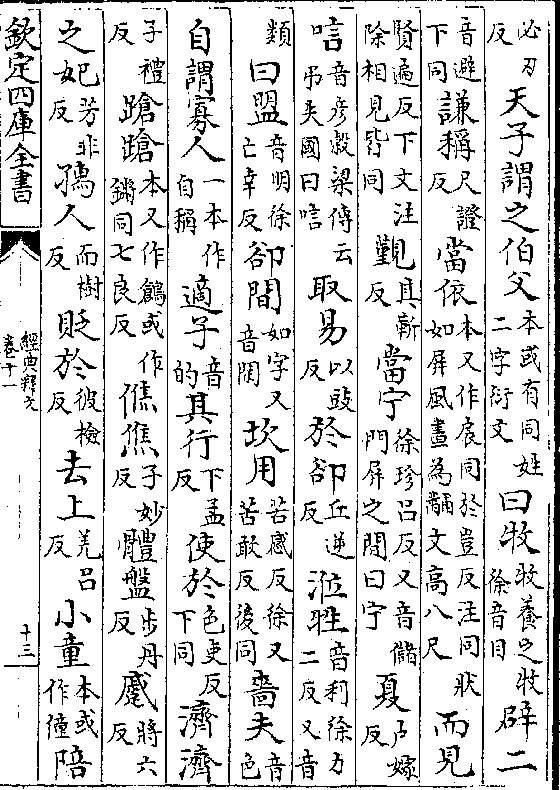 必刃反天子謂之伯父本或有同姓二字衍文曰牧牧養之牧徐音目辟二
音避下同謙稱尺證反當依本又作扆同於豈反注同狀如屏風畫為黼文高八尺而見
賢遍反下文注除相見皆同覲其靳反當宁徐珍呂反又音儲門屏之間曰宁夏戶嫁反
唁音彥糓梁傳云弔失國曰唁取易以豉反於郤丘逆反涖牲音利徐力二反又音
類曰盟音明徐亡幸反郤間如字又音閑坎用苦感反徐又苦敢反後同嗇夫音色
自謂寡人一本作自稱適子音的其行下孟反使於色吏反下同濟濟
子禮反蹌蹌本又作鶬或作鏘同七良反僬僬子妙反體盤步丹反蹙將六反
之妃芳非反孺人而樹反貶於彼檢反去上羌呂反小童本或作僮陪
欽定四庫全書
經典釋文
卷十一
十三